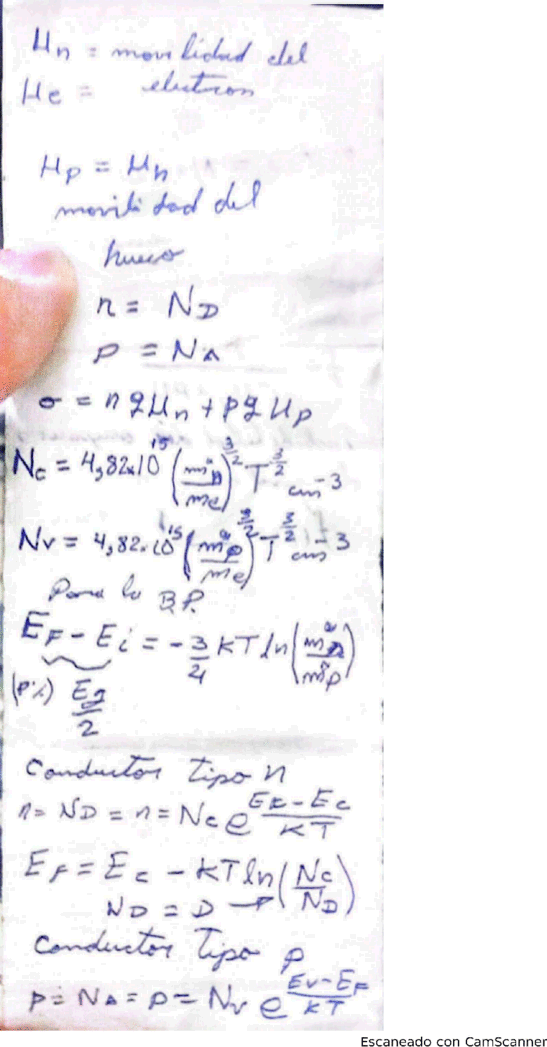 μn = movilidad del
μe = electron
μp = μh
movilidad del
hueco
n = ND
p = NA
σ = n q μn + p q μp
Nc = 4,82x10^15 (m*n/me)^3/2 T^3/2 cm^-3
Nv = 4,82x10^15 (m*p/me)^3/2 T^3/2 cm^-3
Para la B.P.
EF - Ei = -3/4 KT ln(m*n/m*p)
Eg/2
Conductor tipo n
n = ND = n = Nc e^(EF-Ec/KT)
EF = Ec - KT ln(Nc/ND)
ND = D →
Conductor tipo p
p = NA = p = Nv e^(Ev-EF/KT)
Escaneado con CamScanner